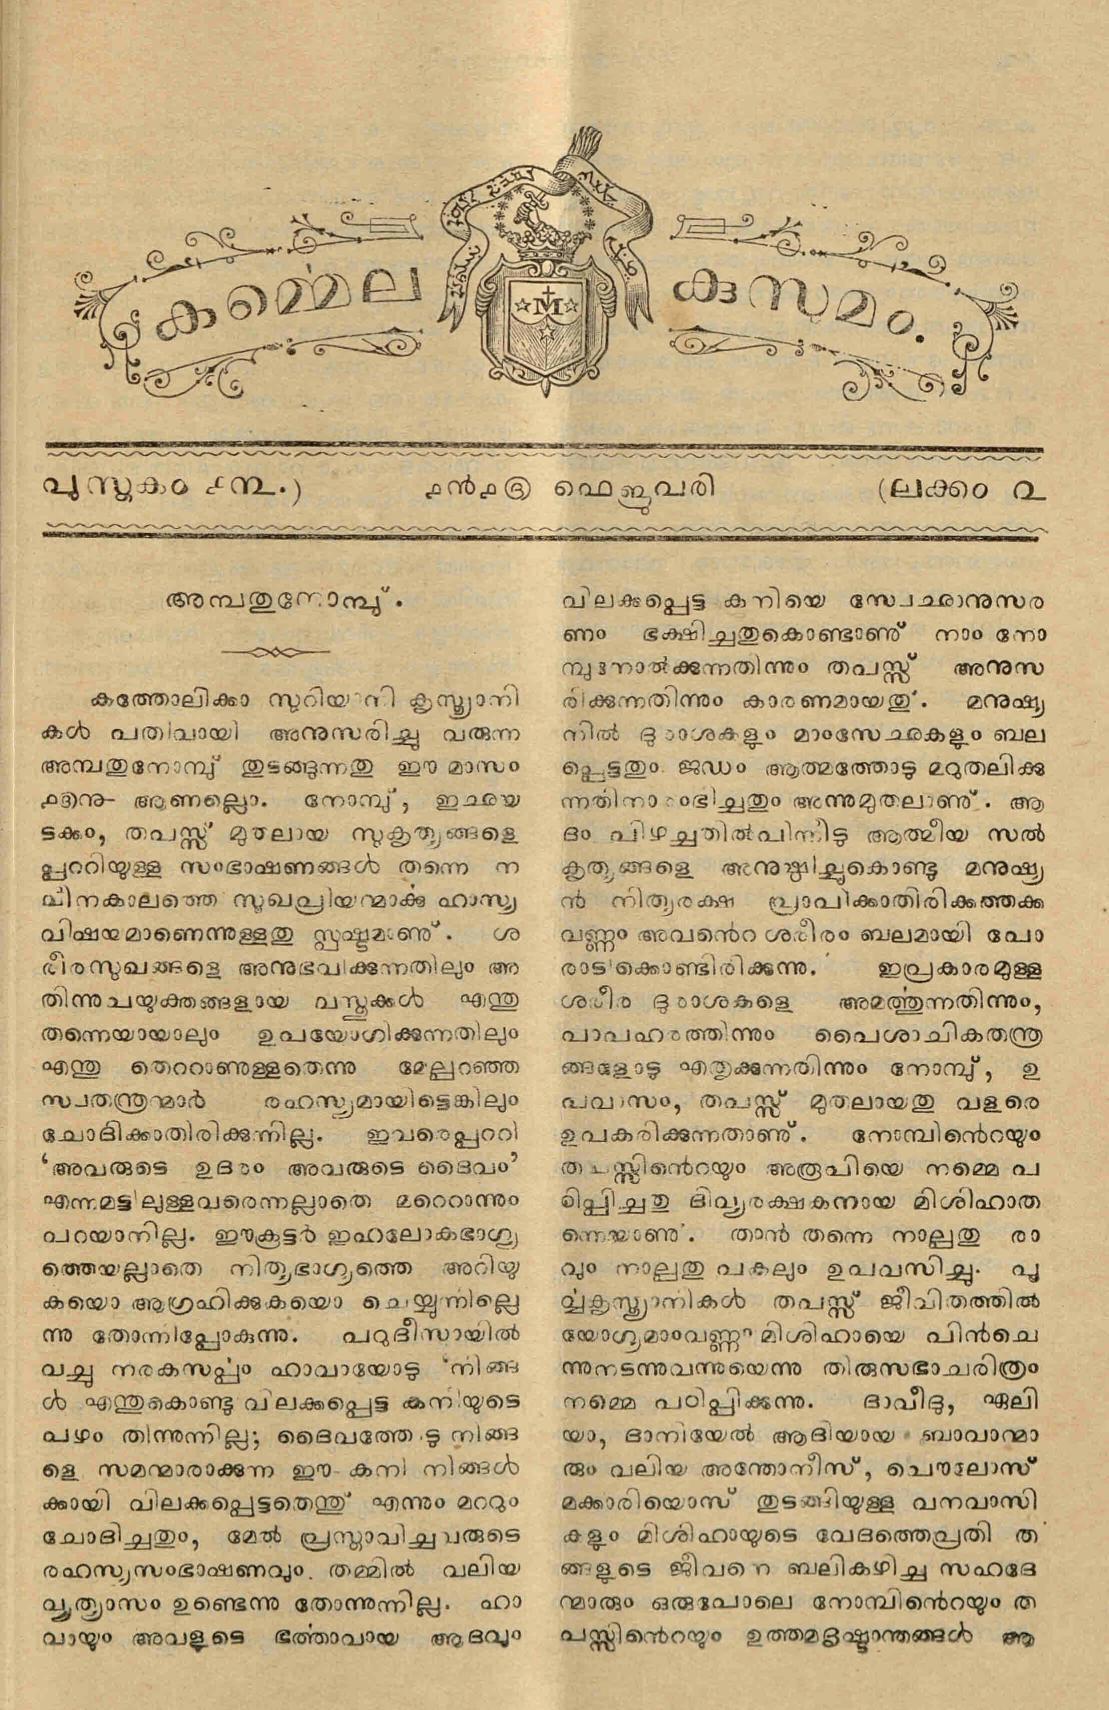 കൎമ്മെല കുസുമം.
പുസ്തകം ൧൩.) ൧൯൧൫ ഫെബ്രുവരി (ലക്കം ൨
അമ്പതുനോമ്പു്.
കത്തോലിക്കാ സുറിയാനി ക്രിസ്ത്യാനി
കൾ പതിവായി അനുസരിച്ചു വരുന്ന
അമ്പതുനോമ്പു് തുടങ്ങുന്നതു ഈ മാസം
൧൫നു- ആണല്ലൊ. നോമ്പു്, ഇച്ഛയ
ടക്കം, തപസ്സ് മുതലായ സുകൃത്യങ്ങളെ
പ്പററിയുള്ള സംഭാഷണങ്ങൾ തന്നെ ന
വീനകാലത്തെ സുഖപ്രിയന്മാൎക്കു ഹാസ്യ
വിഷയമാണെന്നുള്ളതു സ്പഷ്ടമാണു്. ശ
രീരസുഖങ്ങളെ അനുഭവിക്കുന്നതിലും അ
തിന്നുപയുക്തങ്ങളായ വസ്തുക്കൾ എന്തു
തന്നെയായാലും ഉപയോഗിക്കുന്നതിലും
എന്തു തെററാണുള്ളതെന്നു മേല്പറഞ്ഞ
സ്വതന്ത്രന്മാർ രഹസ്യമായിട്ടെങ്കിലും
ചോദിക്കാതിരിക്കുന്നില്ല. ഇവരെപ്പററി
‘അവരുടെ ഉദരം അവരുടെ ദൈവം’
എന്നമട്ടിലുള്ളവരെന്നല്ലാതെ മറെറാന്നും
പറയാനില്ല. ഈകൂട്ടർ ഇഹലോകഭാഗ്യ
ത്തെയല്ലാതെ നിത്യഭാഗ്യത്തെ അറിയു
കയൊ ആഗ്രഹിക്കുകയൊ ചെയ്യുന്നില്ലെ
ന്നു തോന്നിപ്പോകുന്നു. പറുദീസായിൽ
വച്ചു നരകസൎപ്പം ഹാവായോടു ‘നിങ്ങ
ൾ എന്തുകൊണ്ടു വിലക്കപ്പെട്ട കനിയുടെ
പഴം തിന്നുന്നില്ല; ദൈവത്തോടു നിങ്ങ
ളെ സമന്മാരാക്കുന്ന ഈ കനി നിങ്ങൾ
ക്കായി വിലക്കപ്പെട്ടതെന്തു് എന്നും മററും
ചോദിച്ചതും, മേൽ പ്രസ്താവിച്ചവരുടെ
രഹസ്യസംഭാഷണവും തമ്മിൽ വലിയ
വ്യത്യാസം ഉണ്ടെന്നു തോന്നുന്നില്ല. ഹാ
വായും അവളുടെ ഭൎത്താവായ ആദവും
വിലക്കപ്പെട്ട കനിയെ സ്വേച്ഛാനുസര
ണം ഭക്ഷിച്ചതുകൊണ്ടാണു് നാം നോ
മ്പുനോൽക്കുന്നതിന്നും തപസ്സ് അനുസ
രിക്കുന്നതിന്നും കാരണമായതു്. മനുഷ്യ
നിൽ ദുരാശകളും മാംസേച്ഛകളും ബല
പ്പെട്ടതും ജഡം ആത്മത്തോടു മറുതലിക്കു
ന്നതിനാരംഭിച്ചതും അന്നുമുതലാണു്. ആ
ദം പിഴച്ചതിൽപിന്നീടു ആത്മീയ സൽ
കൃത്യങ്ങളെ അനുഷ്ഠിച്ചുകൊണ്ടു മനുഷ്യ
ൻ നിത്യരക്ഷ പ്രാപിക്കാതിരിക്കത്തക്ക
വണ്ണം അവൻെറ ശരീരം ബലമായി പോ
രാടിക്കൊണ്ടിരിക്കുന്നു. ഇപ്രകാരമുള്ള
ശരീര ദുരാശകളെ അമൎത്തുന്നതിന്നും,
പാപഹരത്തിന്നും പൈശാചികതന്ത്ര
ങ്ങളോടു എതൃക്കുന്നതിന്നും നോമ്പു്, ഉ
പവാസം, തപസ്സ് മുതലായതു വളരെ
ഉപകരിക്കുന്നതാണു്. നോമ്പിൻെറയും
തപസ്സിൻെറയും അരൂപിയെ നമ്മെ പ
ഠിപ്പിച്ചതു ദിവ്യരക്ഷകനായ മിശിഹാത
ന്നെയാണു്. താൻ തന്നെ നാല്പതു രാ
വും നാല്പതു പകലും ഉപവസിച്ചു. പൂ
ൎവ്വക്രിസ്ത്യാനികൾ തപസ്സ് ജീവിതത്തിൽ
യോഗ്യമാംവണ്ണം മിശിഹായെ പിൻചെ
ന്നുനടന്നുവന്നുയെന്നു തിരുസഭാചരിത്രം
നമ്മെ പഠിപ്പിക്കുന്നു. ദാവീദു, ഏലി
യാ, ദാനിയേൽ ആദിയായ ബാവാന്മാ
രും വലിയ അന്തോനീസ്, പൌലോസ്
മക്കാരിയൊസ് തുടങ്ങിയുള്ള വനവാസി
കളും മിശിഹായുടെ വേദത്തെപ്രതി ത
ങ്ങളുടെ ജീവനെ ബലികഴിച്ച സഹദേ
ന്മാരും ഒരുപോലെ നോമ്പിൻെറയും ത
പസ്സിൻെറയും ഉത്തമദൃഷ്ടാന്തങ്ങൾ ആ